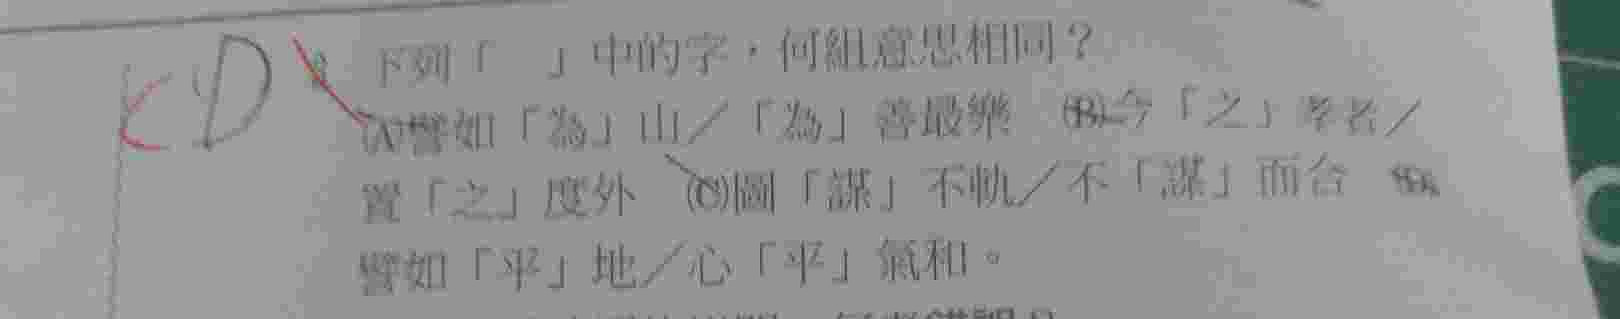 CD 下列「　」中的字，何組意思相同？
(A)譬如「為」山／「為」善最樂　(B)今「之」孝者／
置「之」度外　(C)圖「謀」不軌／不「謀」而合　(D)
譬如「平」地／心「平」氣和。